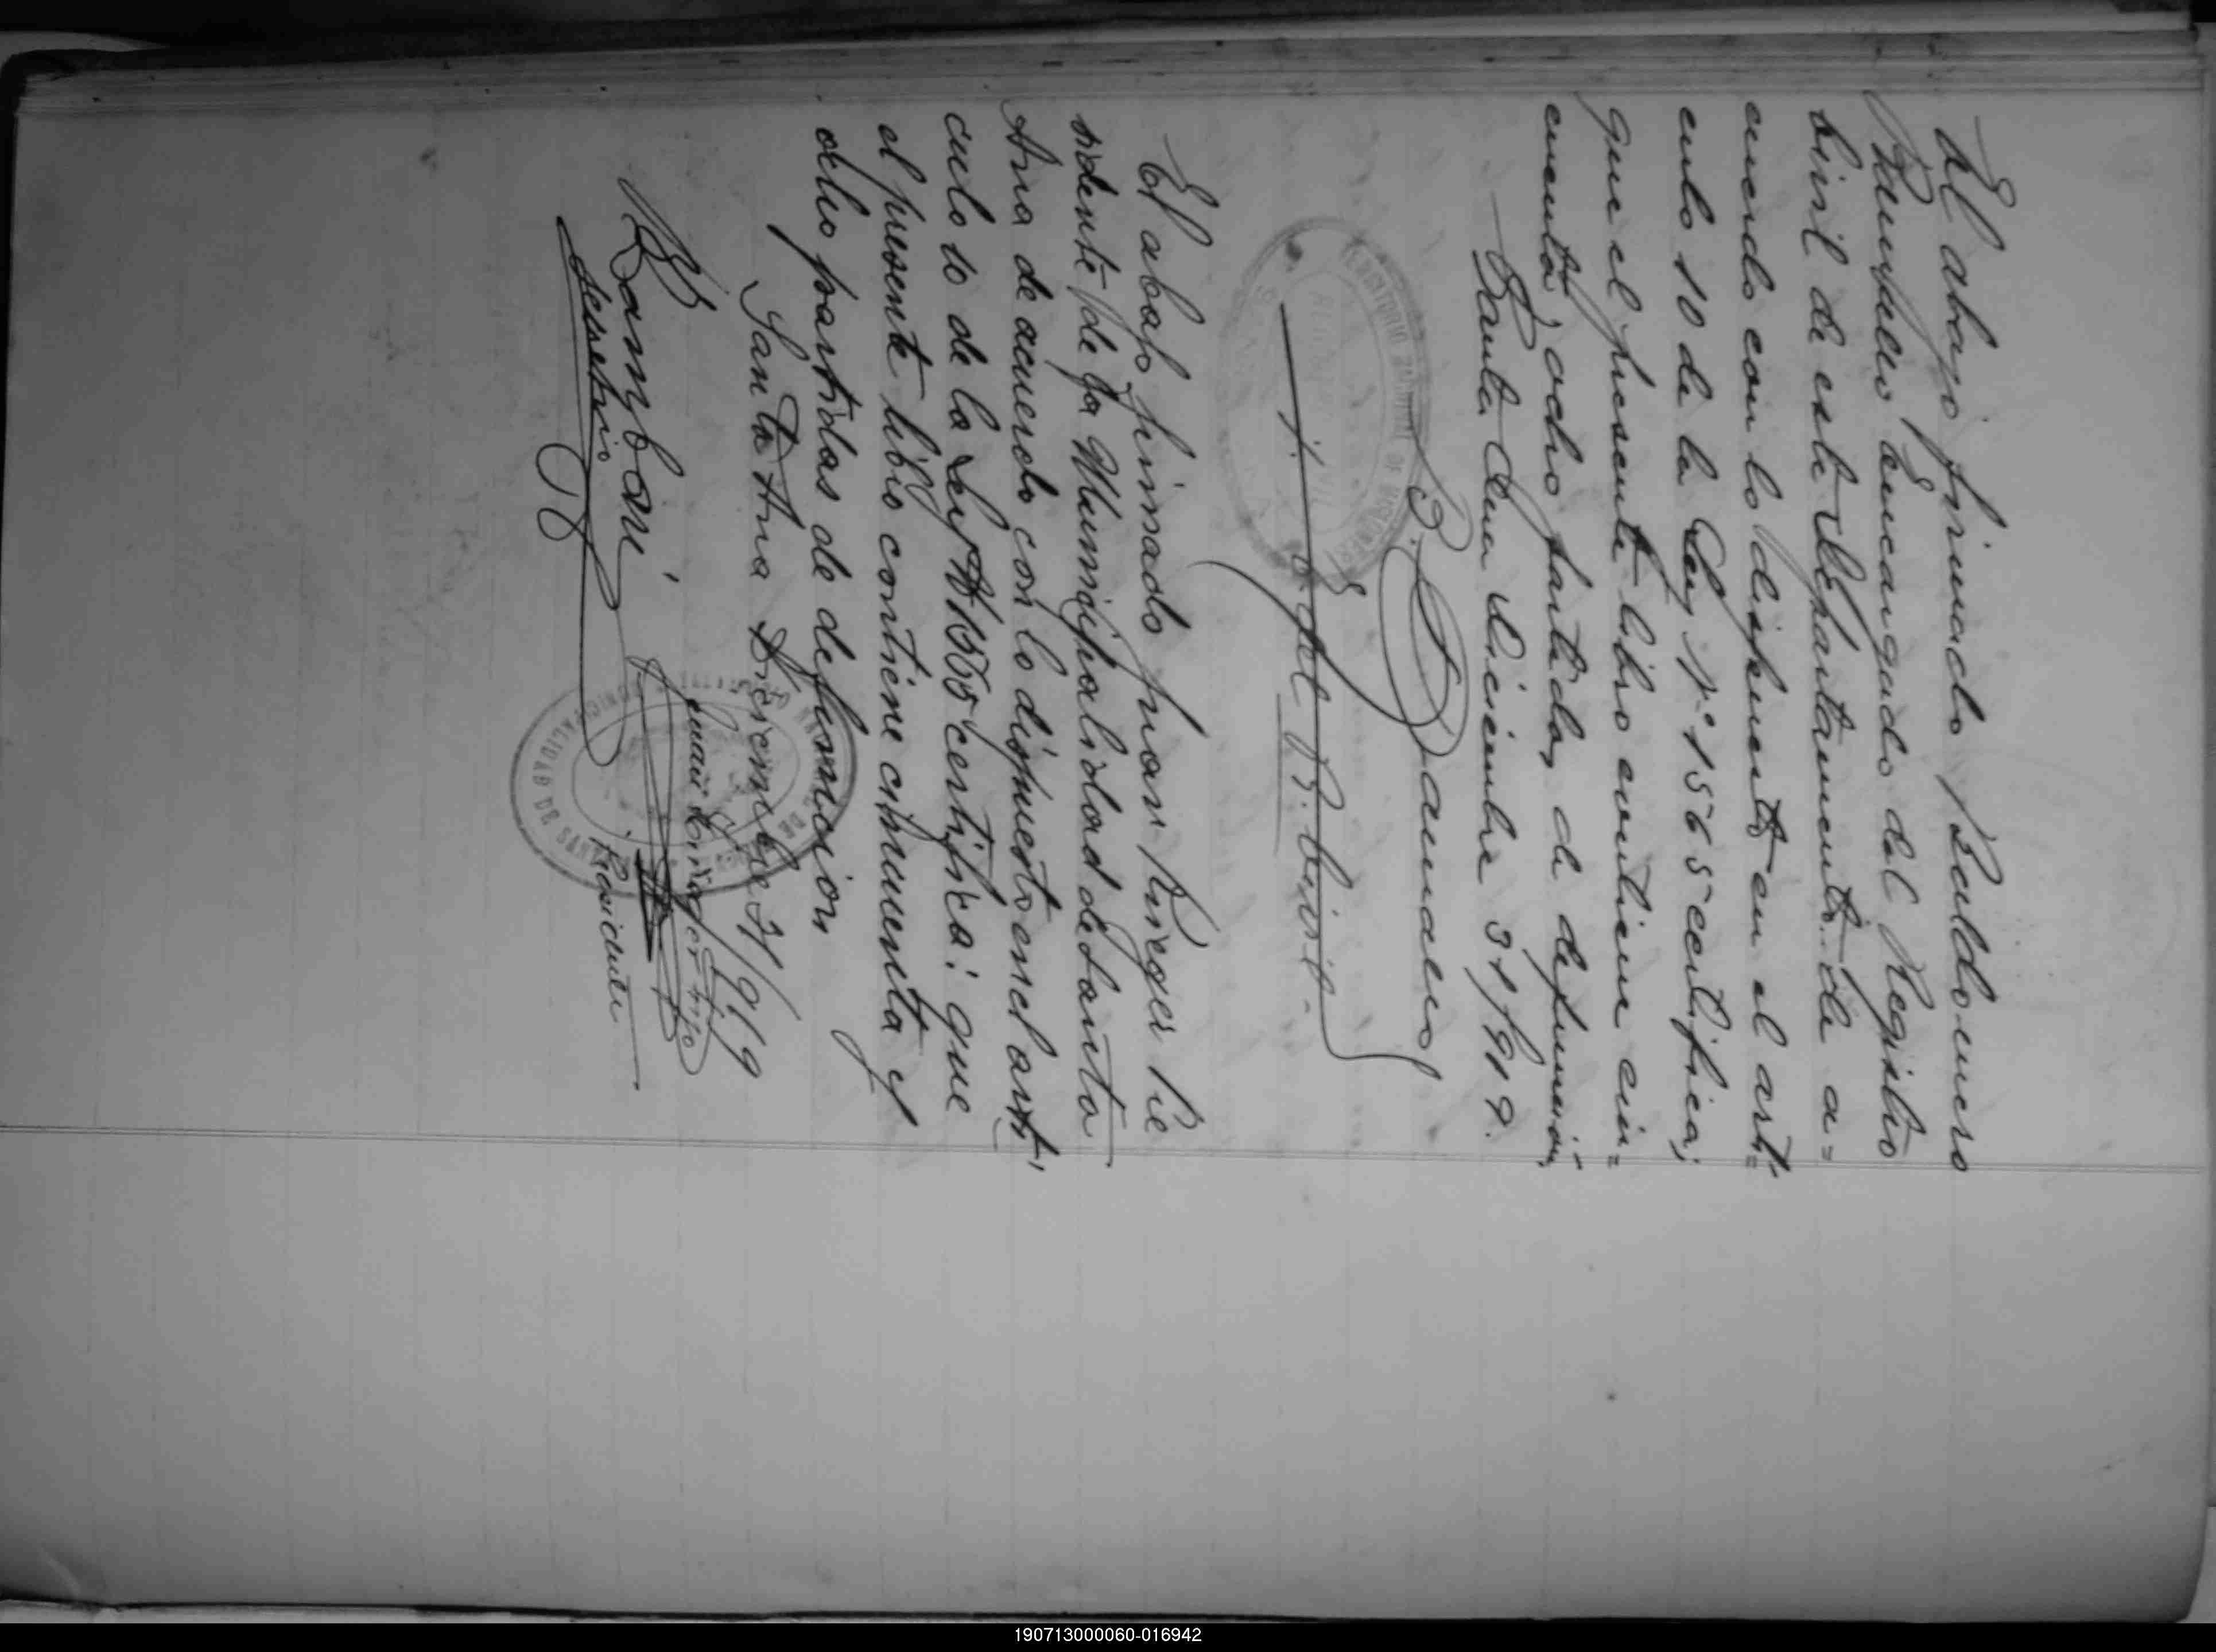 El abajo firmado Baldomero
Encargado del Registro
Civil de este Departamento de a=
cuerdo con lo dispuesto en el artí=
culo 10 de la Ley Nº 1565 certifica;
que el presente libro contiene cin=
cuenta, ocho partidas de defunción,
Santa Ana Diciembre 31/919.
B.
TERRITORIO NACIONAL DE MISIONES
del R. Civil.
El abajo firmado Juan Krieger Pre
sidente de la Municipalidad de Santa
Ana de acuerdo con lo dispuesto en el artí
culo 10 de la Ley Nº 1565 certifica: que
el presente libro contiene cincuenta y
ocho partidas de defuncion
Santa Ana Diciembre 31/919
Juan Krieger
Zambari
Secretario
Presidente
MUNICIPALIDAD DE SANTA
190713000060-016942